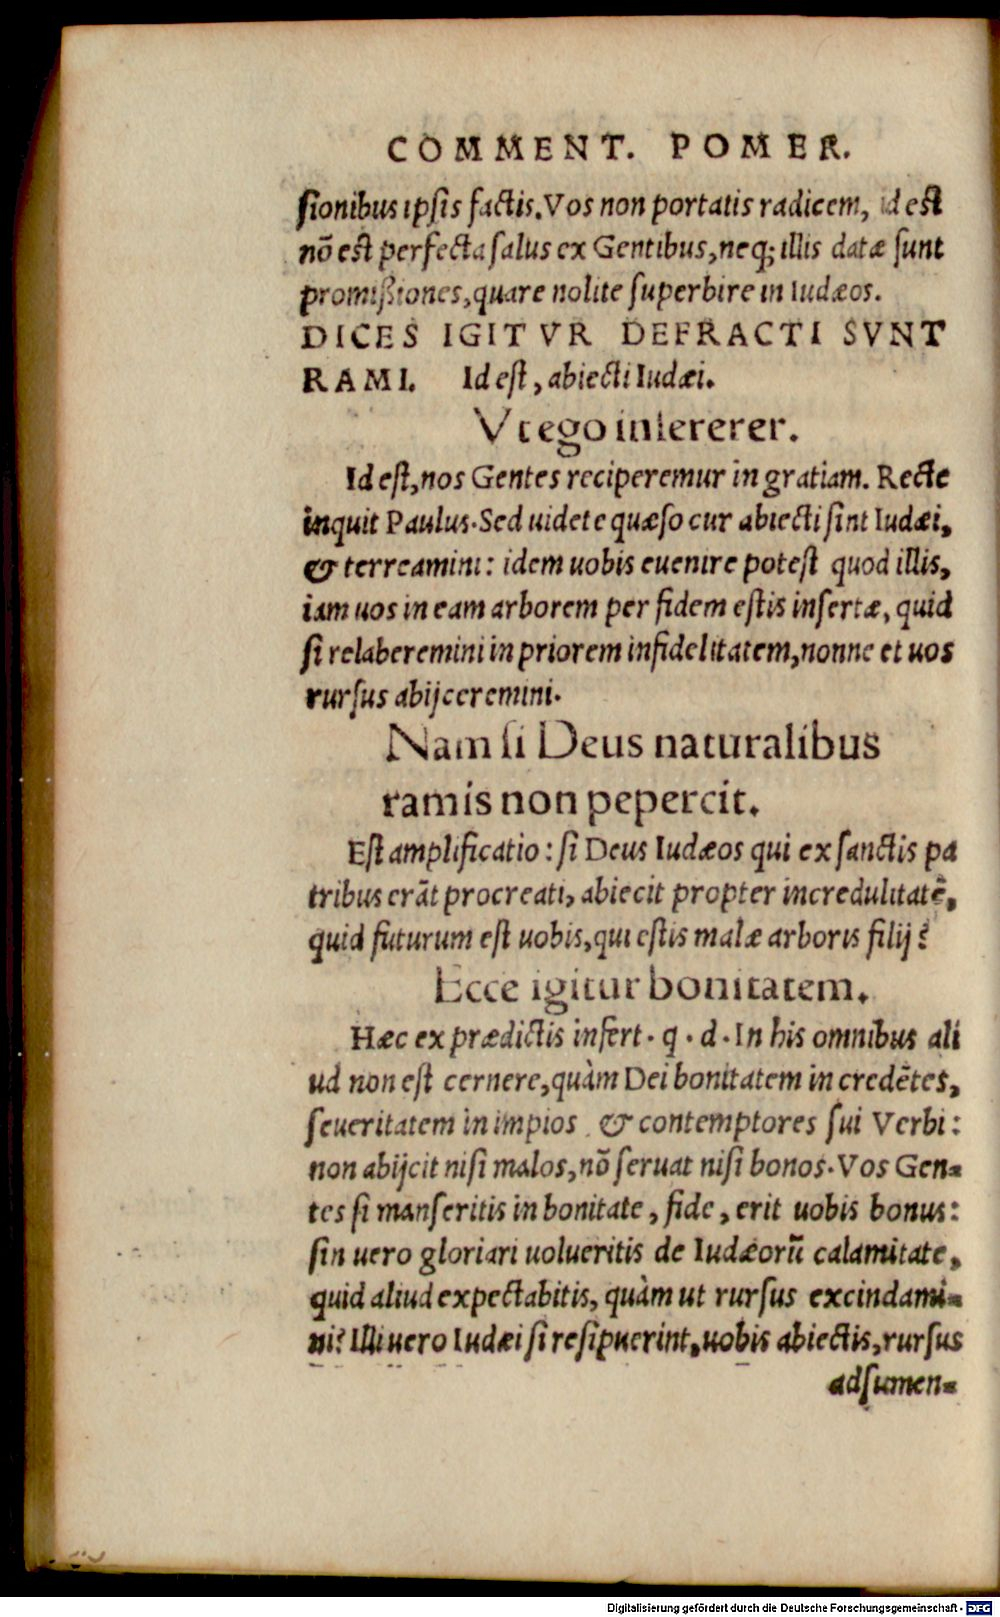 COMMENT. POMER.
sionibus ipsis factis. Vos non portatis radicem, id est
nõ est perfecta salus ex Gentibus, neq; illis datæ sunt
promißiones, quare nolite superbire in Iudæos.
DICES IGITVR DEFRACTI SVNT
RAMI. Id est, abiecti Iudæi.
Vt ego insererer.
Id est, nos Gentes reciperemur in gratiam. Recte
inquit Paulus. Sed uidete quæso cur abiecti sint Iudæi,
& terreamini: idem uobis euenire potest quod illis,
iam uos in eam arborem per fidem estis insertæ, quid
si relaberemini in priorem infidelitatem, nonne et uos
rursus abijceremini.
Nam si Deus naturalibus
ramis non pepercit.
Est amplificatio: si Deus Iudæos qui ex sanctis pa
tribus erãt procreati, abiecit propter incredulitatẽ,
quid futurum est uobis, qui estis malæ arboris filij?
Ecce igitur bonitatem.
Hæc ex prædictis infert. q. d. In his omnibus ali
ud non est cernere, quàm Dei bonitatem in credẽtes,
seueritatem in impios & contemptores sui Verbi:
non abijcit nisi malos, nõ seruat nisi bonos. Vos Gen-
tes si manseritis in bonitate, fide, erit uobis bonus:
sin uero gloriari uolueritis de Iudæorũ calamitate,
quid aliud expectabitis, quàm ut rursus excindami-
ni? Illi uero Iudæi si resipuerint, uobis abiectis, rursus
adsumen-
Digitalisierung gefördert durch die Deutsche Forschungsgemeinschaft - DFG